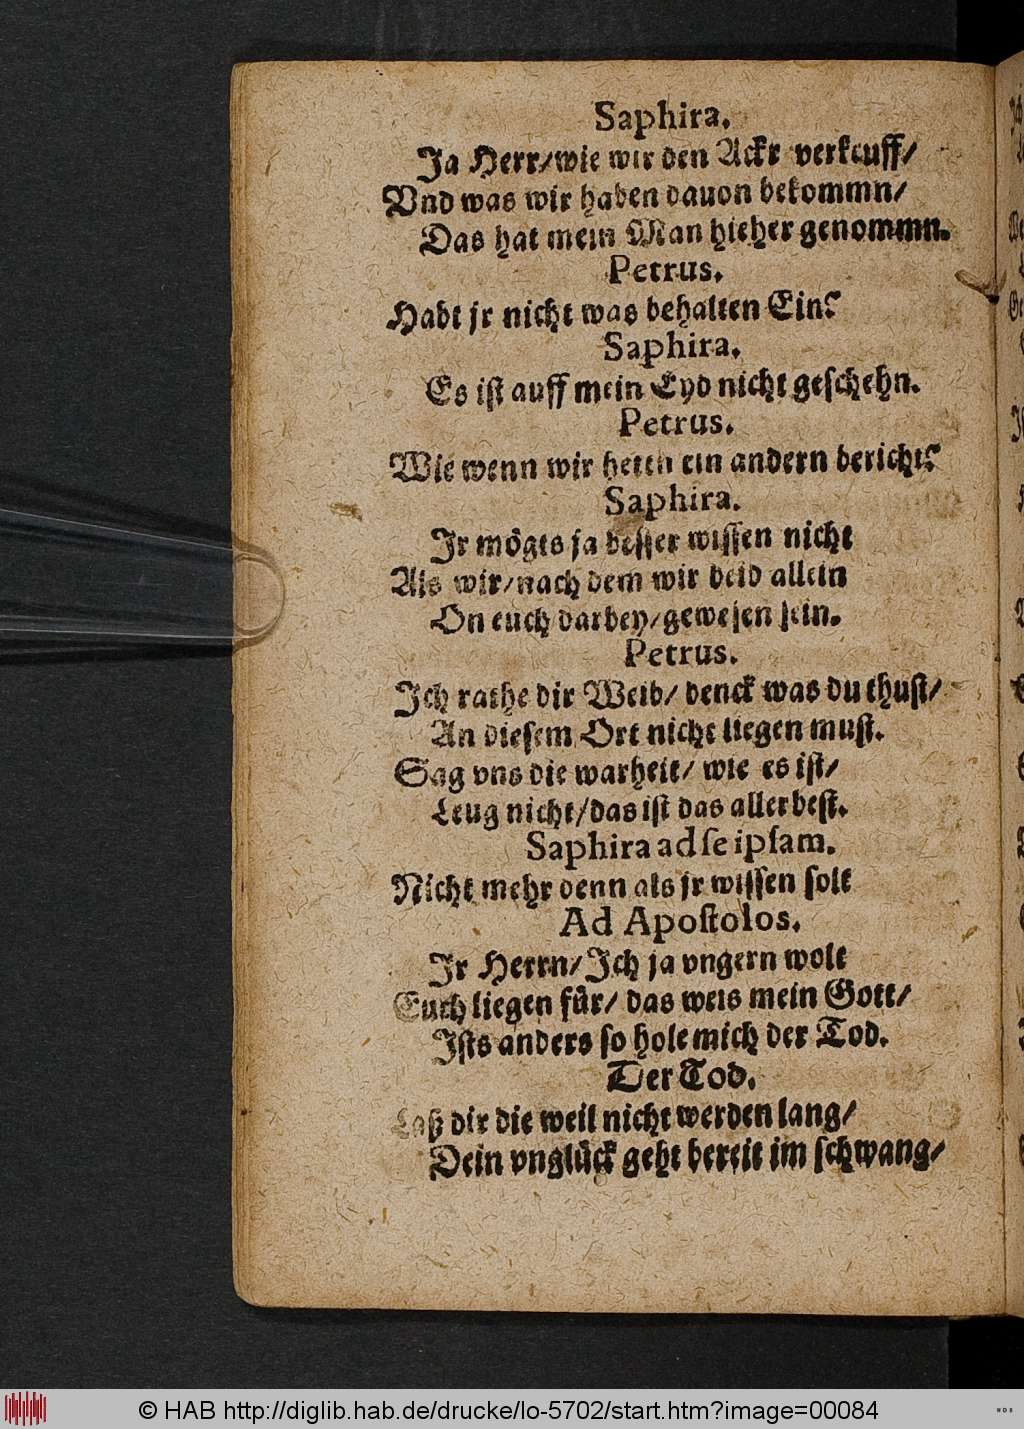 Saphira.
Ja Herr/wie wir den Ackr verkeuff/
Vnd was wir haben dauon bekommn/
Das hat mein Man hieher genommn.
Petrus.
Habt jr nicht was behalten Ein?
Saphira.
Es ist auff mein Eyd nicht geschehn.
Petrus.
Wie wenn wir hetten ein andern bericht?
Saphira.
Jr mögts ja besser wissen nicht
Als wir/nach dem wir beid allein
On euch darbey/gewesen sein.
Petrus.
Ich rathe dir Weib/ denck was du thust/
An diesem Ort nicht liegen must.
Sag vns die warheit/ wie es ist/
Leug nicht/das ist das allerbest.
Saphira ad se ipsam.
Nicht mehr denn als jr wissen solt
Ad Apostolos.
Jr Herrn/Ich ja vngern wolt
Euch liegen für/ das weis mein Gott/
Ists anders so hole mich der Tod.
Der Tod.
Laß dir die weil nicht werden lang/
Dein vnglück geht bereit im schwang/
© HAB http://diglib.hab.de/drucke/lo-5702/start.htm?image=00084